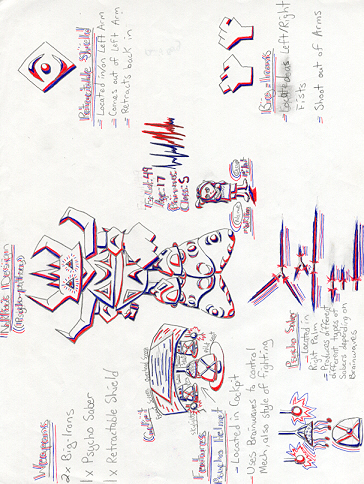 Retractable Shield
= Located in/on Left Arm
= Comes out of Left Arm
= Retracts back in
Big-Irons
= Located as Left/Right
Fists
= Shoot out of Arms
Age: 17
Class: S
Psycho Saber
= Located in
Right Palm
= Produces different
different types of
Sabers depending on
Brainwaves
Weapons
2x Big-Irons
1x Psycho Saber
1x Retractable Shield
Cockpit
Features
Psycho Helmet
- Located in Cockpit
- Uses Brainwaves to Control
Mech, also style of fighting